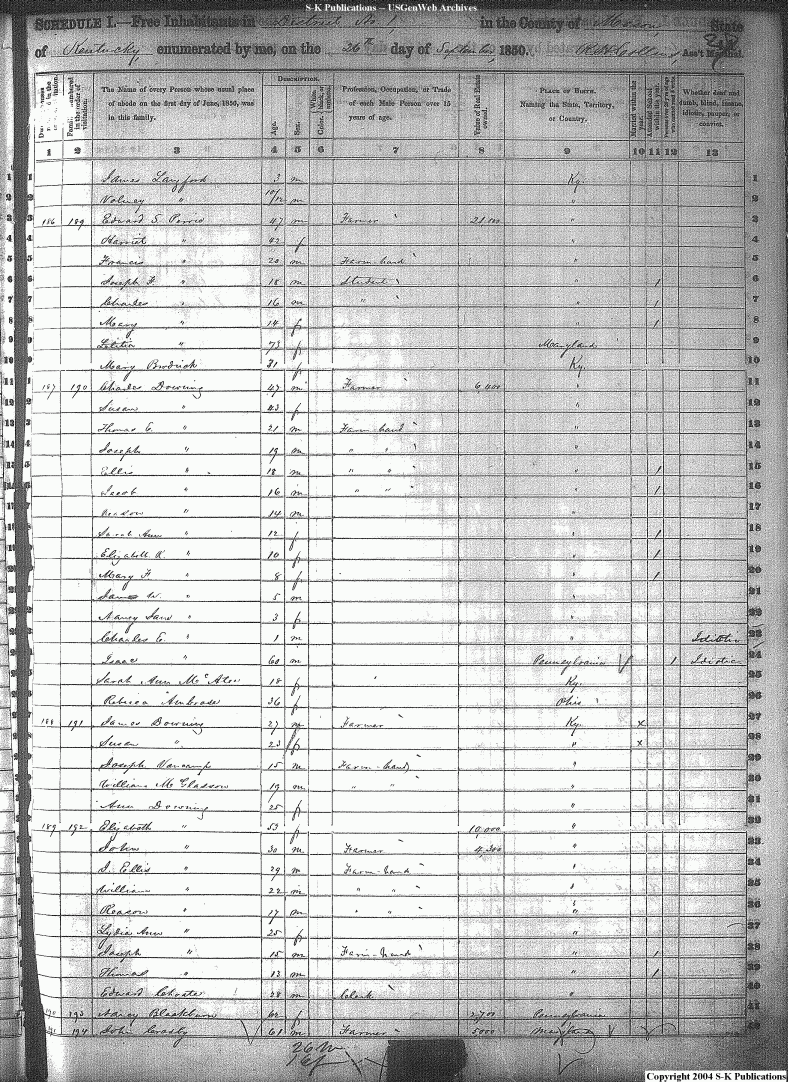 S-K Publications -- USGenWeb Archives
SCHEDULE I.—Free Inhabitants in District No. 1 in the County of Mason State
of Kentucky enumerated by me, on the 26th day of September 1850. Ass't Marshal.
DESCRIPTION.
The Name of every Person whose usual place of abode on the first day of June, 1850, was in this family.
Age.
Sex.
Profession, Occupation, or Trade of each Male Person over 15 years of age.
Value of Real Estate owned.
PLACE OF BIRTH. Naming the State, Territory, or Country.
Married within the year.
Whether deaf and dumb, blind, insane, idiotic, pauper, or convict.
1 2 3 4 5 6 7 8 9 10 11 12 13
1 James Langford 3 m Ky. 1
2 Volney " 10/12 m " 2
3 186 189 Edward S. 47 m Farmer " 3
4 Harriet " 42 f " 4
5 Francis " 20 m Farm hand " 5
6 Joseph F. " 18 m Student " 1 6
7 Charles " 16 m " " 1 7
8 Mary " 14 f " 1 8
9 " 73 f Maryland 9
10 Mary 31 f Ky. 10
11 187 190 Charles Downing 47 m Farmer " 11
12 Susan " 43 f " 12
13 Thomas E. " 21 m Farm hand " 13
14 Joseph " 19 m " " " 14
15 Ellis " 18 m " " " 1 15
16 Jacob " 16 m " " " 1 16
17 Reason " 14 m " 17
18 Sarah Ann " 12 f " 1 18
19 Elizabeth R. " 10 f " 1 19
20 Mary F. " 8 f " 1 20
21 James W. " 5 m " 21
22 Nancy Jane " 3 f " 22
23 Charles E. " 1 m " 23
24 Isaac " 60 m Pennsylvania 1 24
25 Sarah Ann 18 f Ky. 25
26 Ambrose 36 f Ohio 26
27 188 191 James Downing 27 m Farmer Ky. x 27
28 Susan " 23 f " x 28
29 Joseph Vancamp 15 m Farm hand " 29
30 William McGlasson 19 m " " " 30
31 Ann Downing 25 f " 31
189 192 Elizabeth " 53 f 10,000 "
John " 30 m Farmer 4,300 "
J. Ellis " 29 m Farm hand "
William " 22 m " " "
Reason " 17 m " " "
Lydia Ann " 25 f "
Joseph " 15 m Farm hand " 1
Thomas " 13 m " 1
Edward Choate 28 m Clerk "
193 Nancy Blackburn 62 f 2,700 Pennsylvania
194 John Crosby 61 m Farmer 5000 Maryland
26 m
16 f
Copyright 2004 S-K Publications